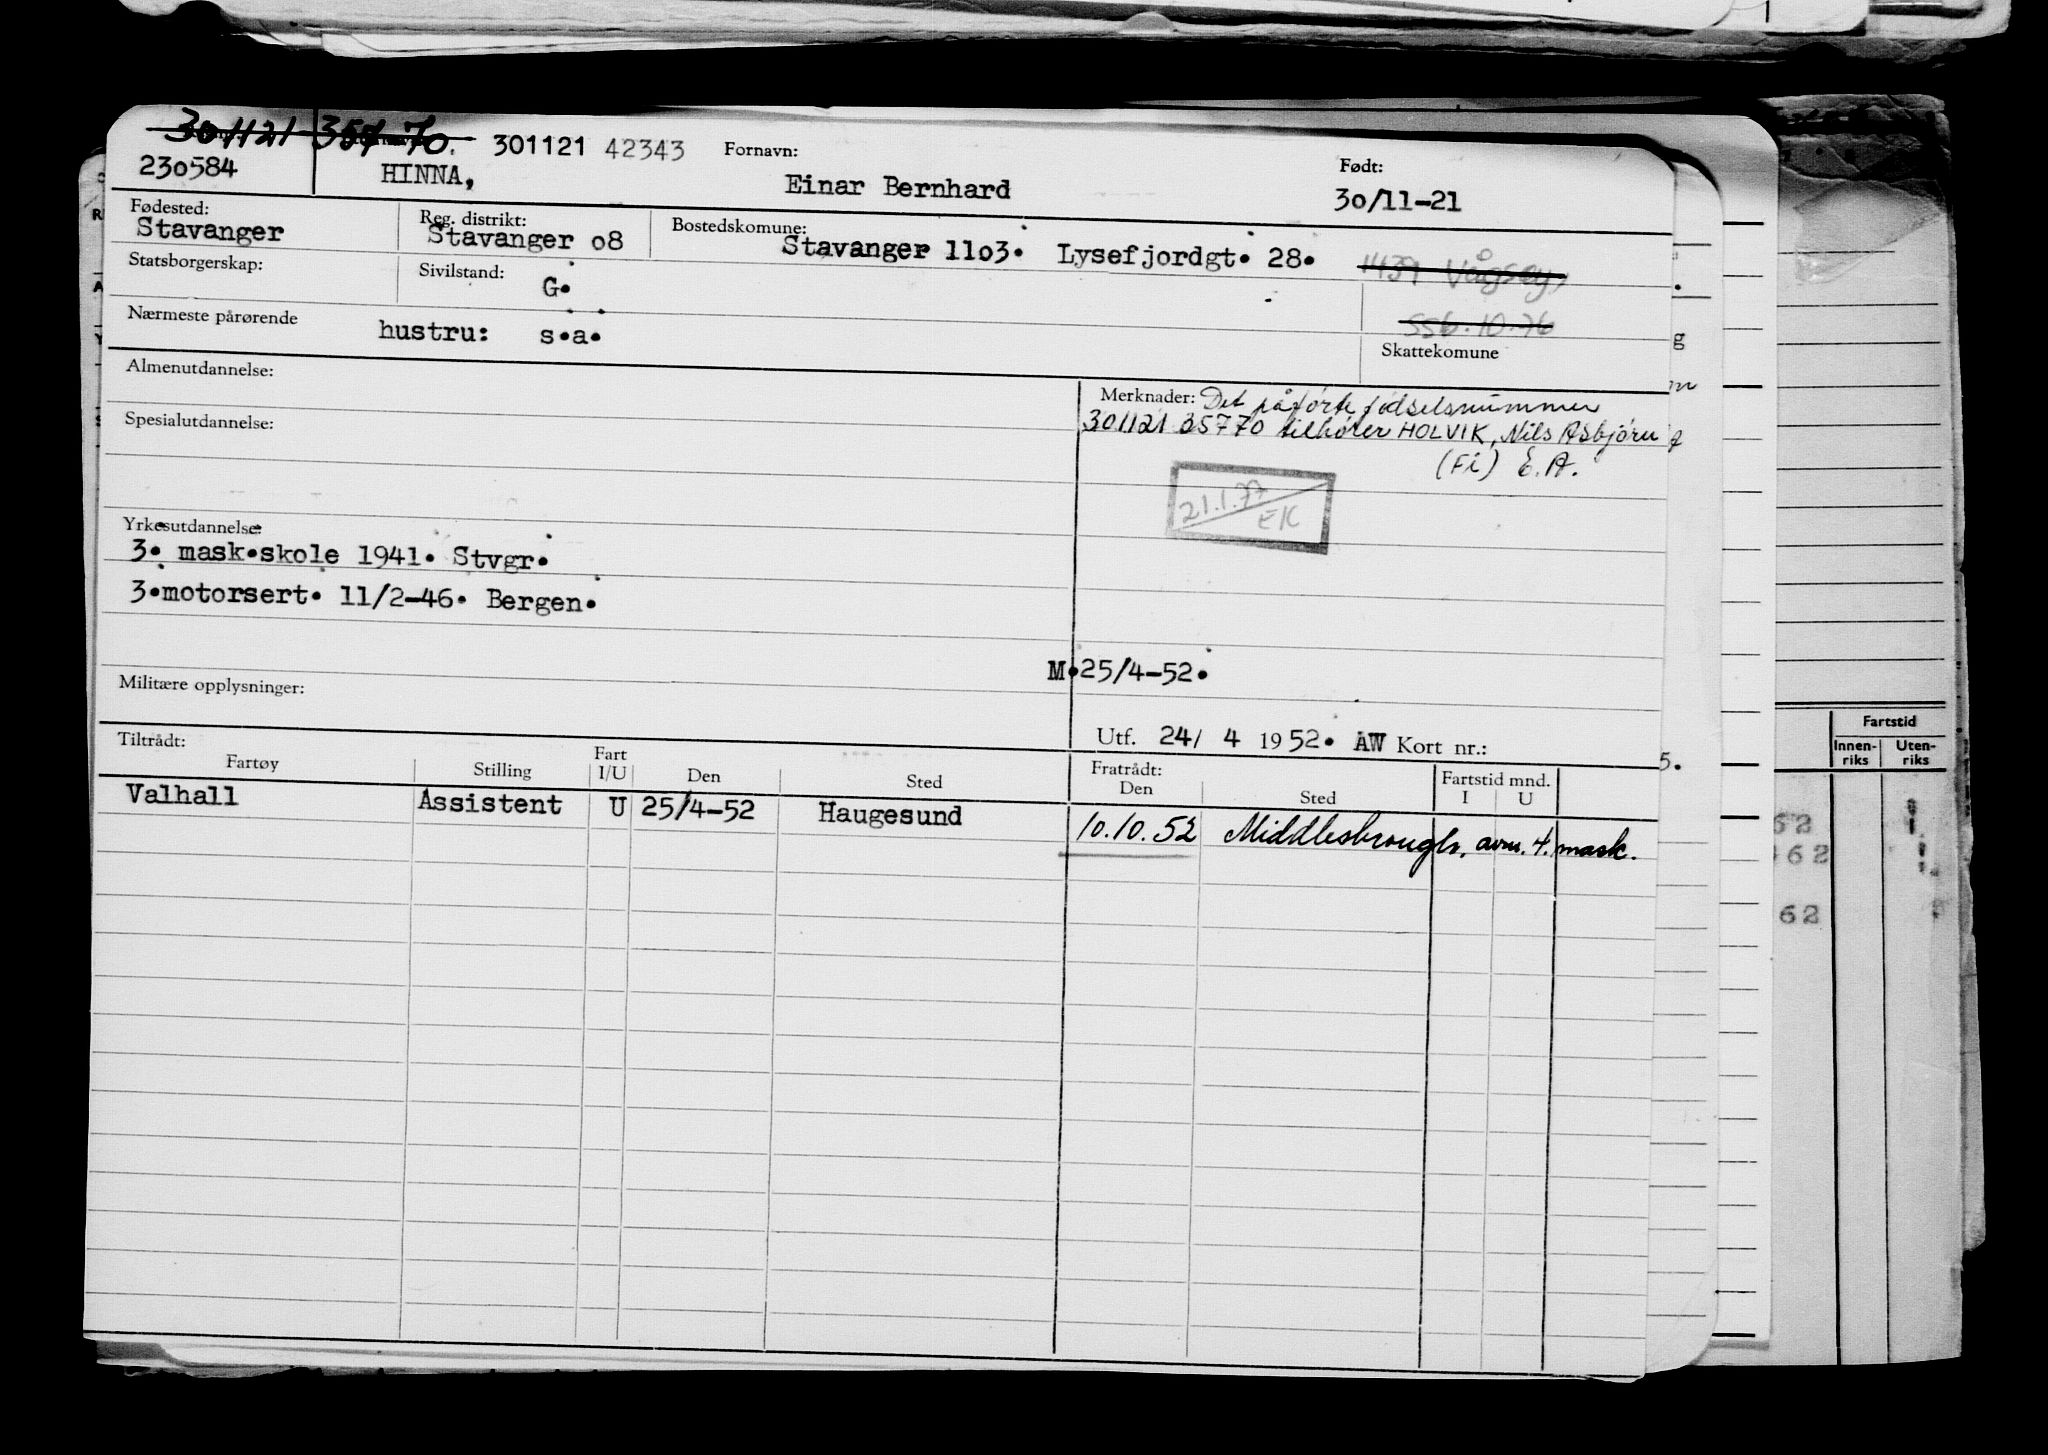 301121 35770. 301121 42343 Fornavn: Født:
230584 HINNA, Einar Bernhard 30/11-21
Fødested: Reg. distrikt: Bostedskomune:
Stavanger Stavanger o8 Stavanger 11o3. Lysefjordgt. 28. 1439 Vågsøy
Statsborgerskap: Sivilstand: G.
Nærmeste pårørende hustru: s.a. SSB.10.76
Skattekomune
Almenutdannelse: Merknader: Det påførte fødselsnummer
Spesialutdannelse: 301121 35770 tilhører HOLVIK, Nils Asbjørn
(Fi) E.A.
21.1.77
EK
Yrkesutdannelse:
3. mask.skole 1941. Stvgr.
3.motorsert. 11/2-46. Bergen.
M.25/4-52.
Militære opplysninger:
Utf. 24/ 4 1952. AW Kort nr.:
Tiltrådt: Fratrådt:
Fartøy Stilling Fart I/U Den Sted Den Sted Fartstid mnd. I U
Valhall Assistent U 25/4-52 Haugesund 10.10.52 Middlesbrough, avm. 4. mask.
Fartstid
Innen-riks Uten-riks
62
62
62